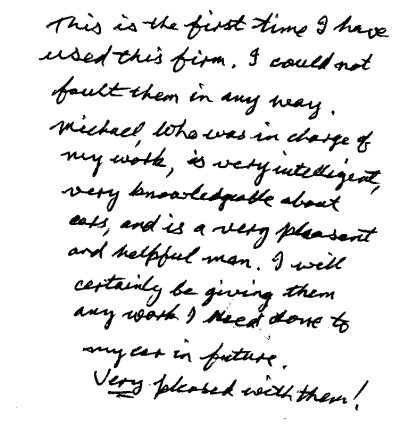 This is the first time I have
used this firm. I could not
fault them in any way.
Michael, who was in charge of
my work, is very intelligent,
very knowledgeable about
cars, and is a very pleasant
and helpful man. I will
certainly be giving them
any work I need done to
my car in future.
Very pleased with them!